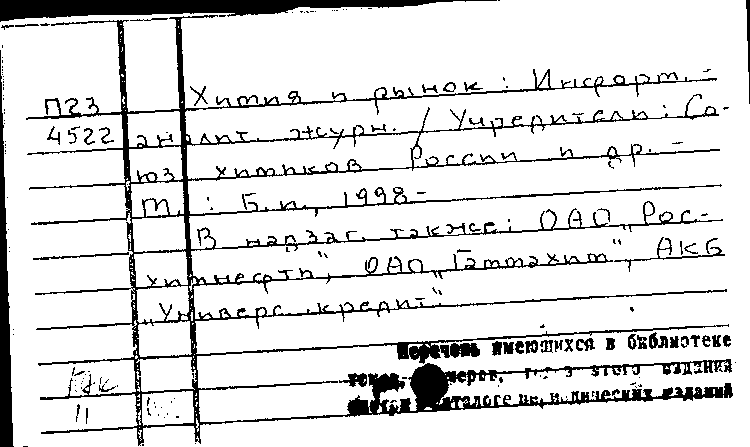 П23 Химия и рынок: Информ.-
4522 аналит. журн. / Учредители: Со-
юз химиков России и др. -
М.: Б.и., 1998-
В надзаг. также: ОАО „Рос-
химнефть", ОАО „Гаммахим", АКБ
„Универс. кредит"
Перечень имеющихся в библиотеке
этого издания
каталоге периодических изданий
11